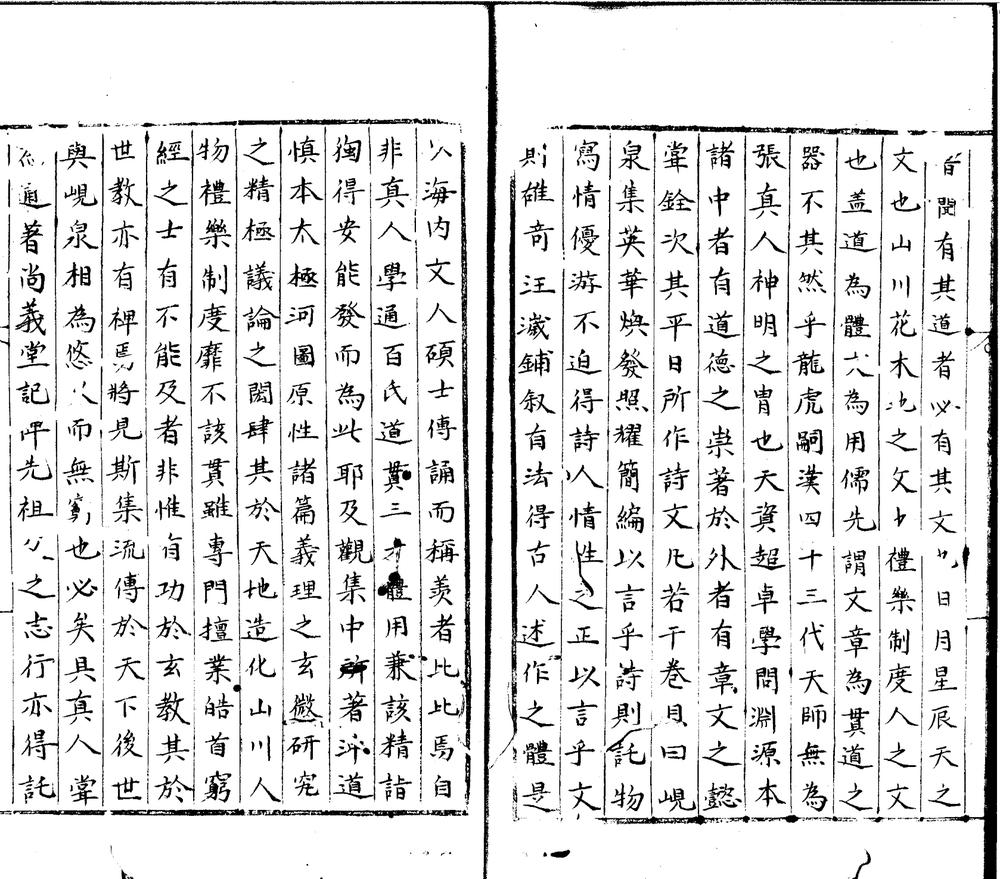 昔聞有其道者必有其文日月星辰天之
文也山川花木地之文也禮樂制度人之文
也蓋道為體六為用儒先謂文章為貫道之
器不其然乎龍虎嗣漢四十三代天師無為
張真人神明之胄也天資超卓學問淵源本
諸中者有道德之崇著於外者有章文之懿
甞銓次其平日所作詩文凡若干卷目曰峴
泉集英華煥發照耀簡編以言乎詩則託物
寫情優游不迫得詩人情性之正以言乎文
則雄竒汪濊鋪叙有法得古人述作之體是
以海内文人碩士傳誦而稱羡者比比焉自
非真人學通百氏道貫三才體用兼該精詣
獨得安能發而為此耶及觀集中所著沖道
慎本太極河圖原性諸篇義理之玄微研究
之精極議論之閎肆其於天地造化山川人
物禮樂制度靡不該貫雖專門擅業皓首窮
經之士有不能及者非惟有功於玄教其於
世教亦有裨焉將見斯集流傳於天下後世
與峴泉相為悠久而無窮也必矣具真人甞
通著尚義堂記俾先祖父之志行亦得託